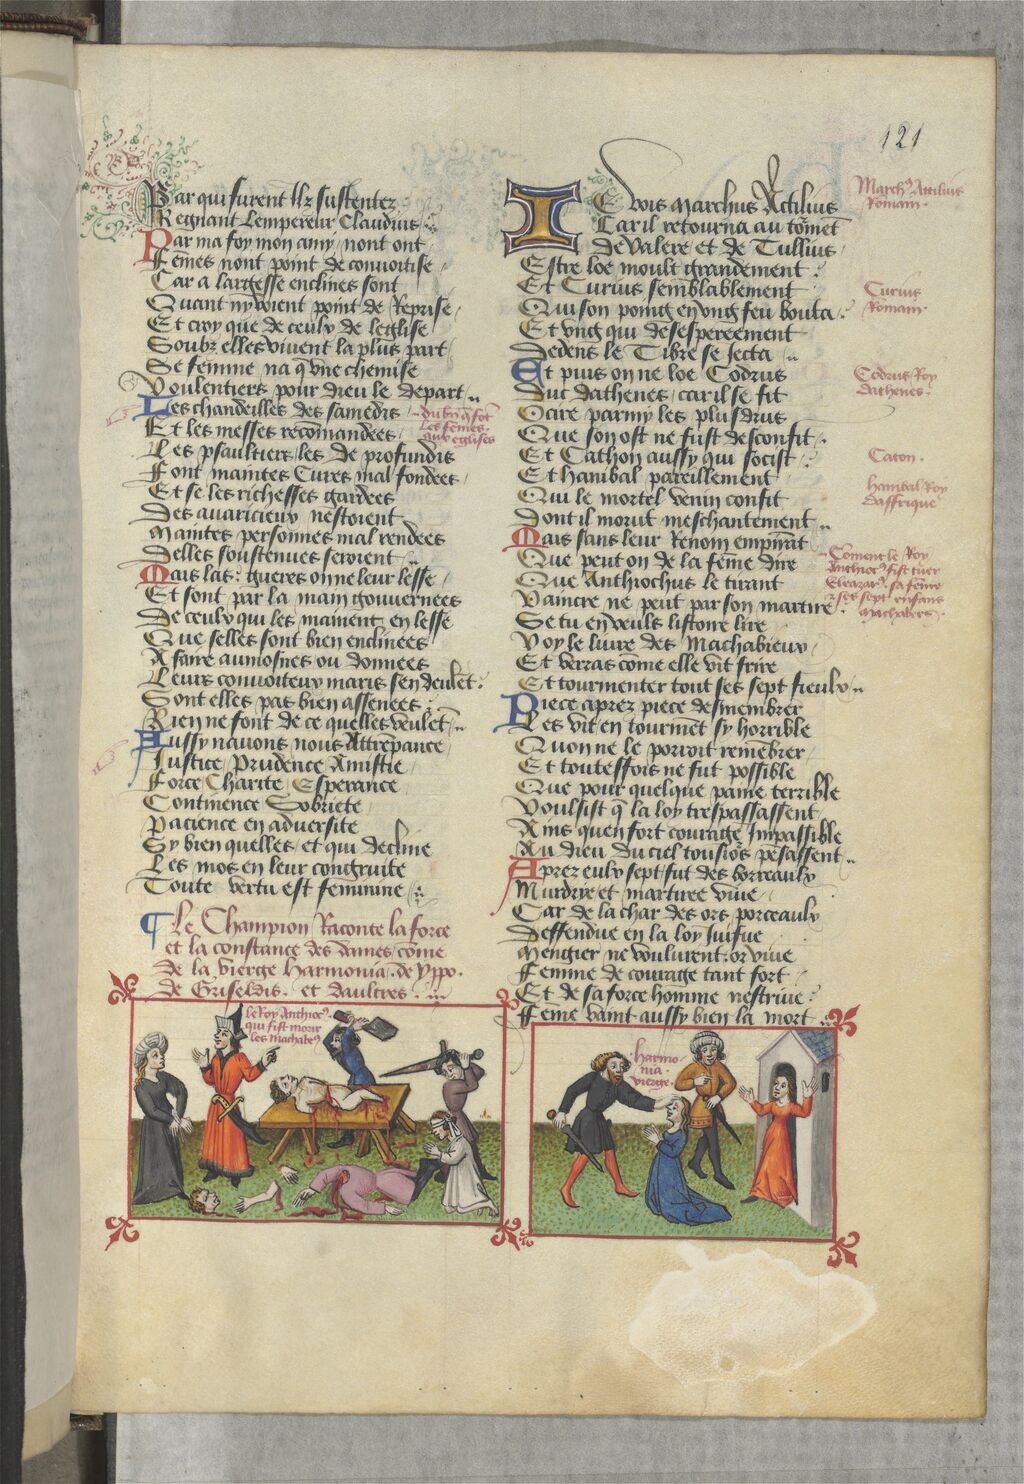 121
Par qui furent ilz sustentez
Regnant Lempereur Claudius
Par ma foy mon amy / nont ont
Femes nont point de convoitise
Car a largesse enclines sont
Quant ny voient point de Reprise
Et croy que de ceulx de leglise
Soubz elles vivent la plus part
Se femme na q vne chemise
Voulentiers pour dieu le depart
Les chandeilles des samedis
Et les messes recomandees
Les psaultiers / les de profundis
Font maintes Cures mal fondees
Et se les richesses gardees
Des avaricieux nestoient
Maintes personnes mal rendees
Delles soustenues seroient
Mais las: gueres on ne leur lesse
Et sont par la main gouvernees
De ceulx qui les mainent en lesse
Que selles sont bien enclinees
A faire aumosnes ou donnees
Leurs convoiteux maris sen deulet
Sont elles pas bien assenees
Rien ne font de ce quelles veulet
Aussy navons nous Attrempance
Justice / Prudence / Amistie
Force Charite / Esperance
Continence Sobriete
Pacience en adversite
Sy bien quelles / et qui decline
Les mos en leur congruite
Toute vertu est feminine
Le Champion Raconte la force
et la constance des dames / come
de la vierge Harmonia . de Yppo.
de Griseldis . et daultres .
du bn q fot
les femes
aux eglises
le Roy Anthioc9
qui fist morir
les machabe9
IE vois Marchus Actilius
Car il retourna au tormet
De Valere et de Tullius
Estre loe moult grandement
Et Curius semblablement
Qui son poing en vng feu bouta
Et vng qui desespereement
Dedens le Tibre se Jecta
Et puis on ne loe Codrus
Duc dathenes / car il se fit
Ocire parmy les plus drus
Que son ost ne fust desconfit
Et Cathon aussy qui socist
Et hanibal pareillement
Qui le mortel venin confit
Dont il morut meschantement
Mais sans leur Renom empirat
Que peut on de la feme dire
Que Anthiochus le tirant
Vaincre ne peut par son martire
Se tu en veuls listoire lire
Voy le livre des Machabieux
Et verras come elle vit frire
Et tourmenter tout ses sept fieulx
Piece aprez piece desmembrer
Les vit en tourmet sy horrible
Quon ne le porroit remebrer
Et toutesfois ne fut possible
Que pour quelque paine terrible
Voulsist q la loy trespassassent
Ains quen fort courage Impassible
Au dieu du ciel tousiors pesassent
Aprez eulx sept fut des borreaulx
Murdrye et martiree vive
Car de la char des ors porceaulx
Deffendue en la loy Juifue
Mengier ne voulurent: or vive
Femme de courage tant fort
Et de sa force homme nestrive
Feme vaint aussy bien la mort
March9 Attilius
Romain.
Curius
Romain.
Codrus Roy
dathenes.
Caton.
hanibal Roy
daffrique
Coment le Roy
Anthioc9 fist tuer
Eleazar . sa feme
z ses sept enfans
machabe9
harmo
nia
vierge.